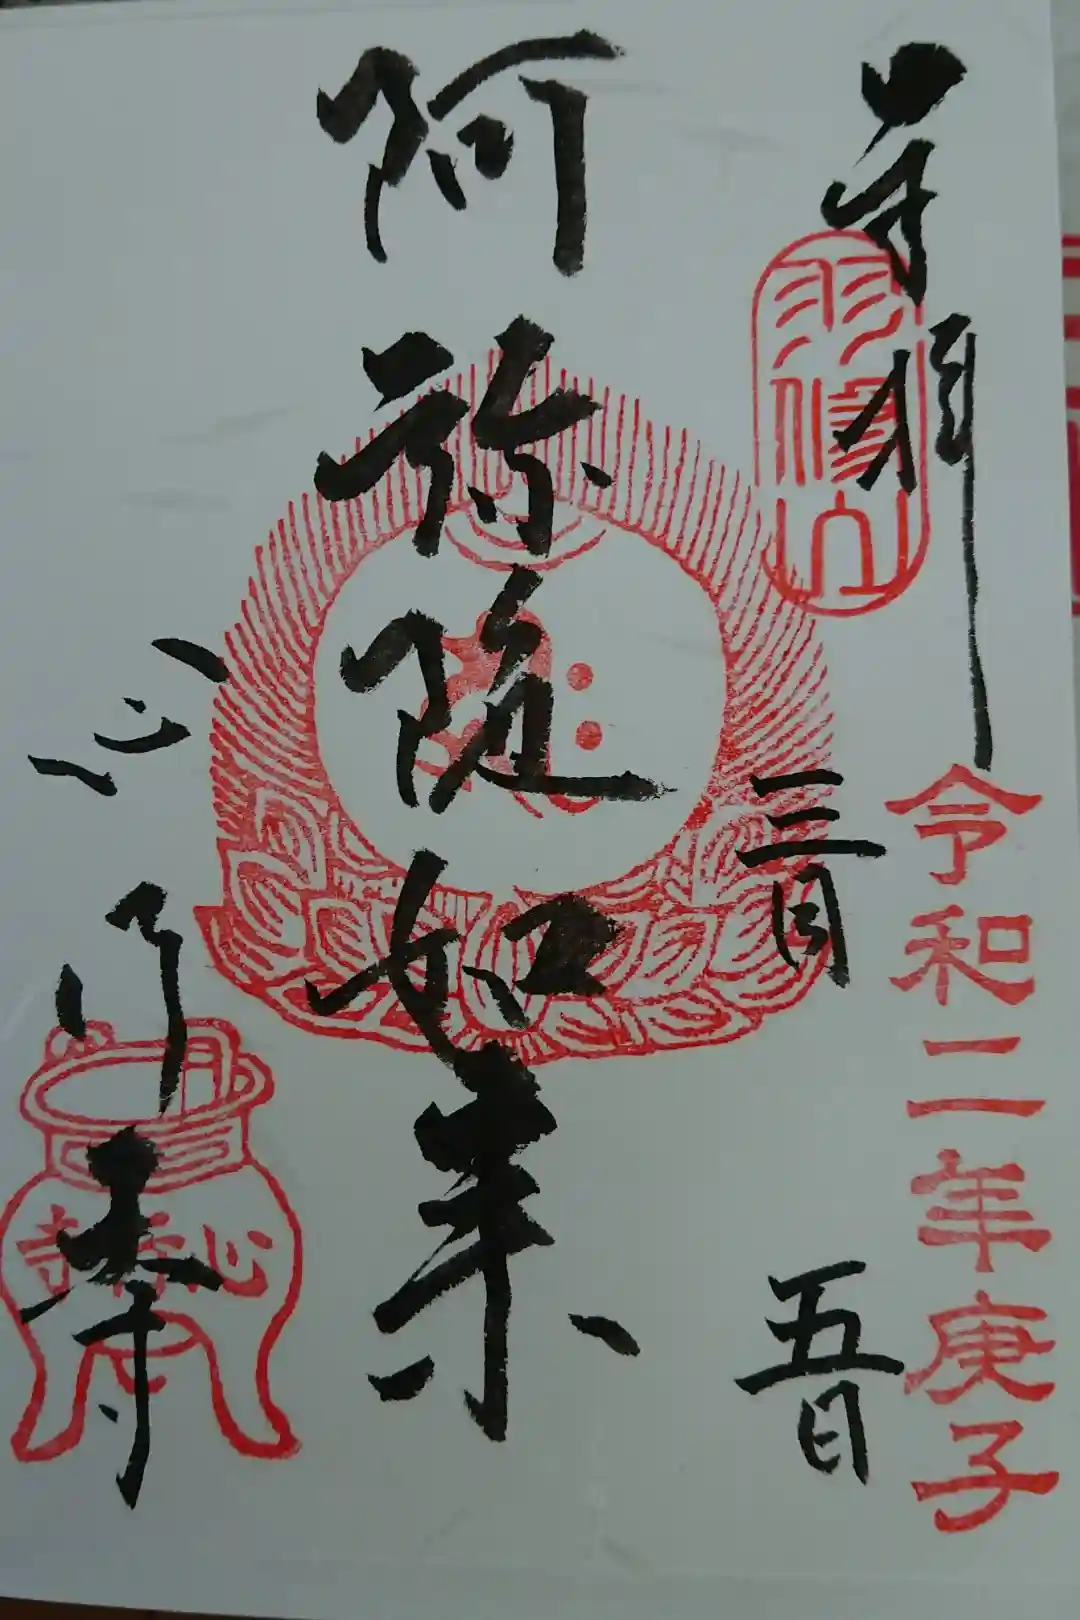 奉拝
羽僧山
令和二年庚子
三月
五日
阿弥陀如来
心行寺
心行寺